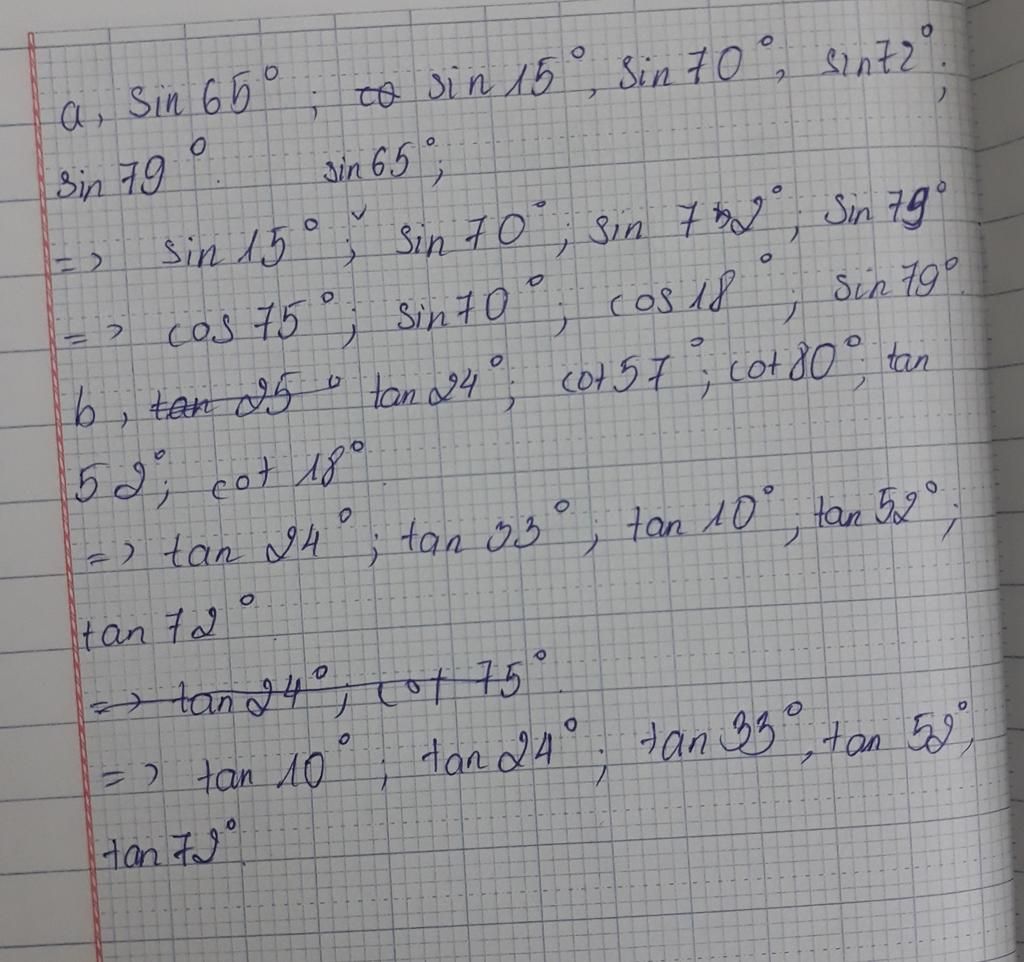 a, sin 65°; sin 15°, sin 70°; sin 72°;
sin 79°. sin 65°;
=> sin 15°; sin 70°; sin 72°; sin 79°
=> cos 75°; sin 70°; cos 18°; sin 79°.
b, tan 25° tan 24°; cot 57°; cot 80°; tan
52°; cot 18°.
=> tan 24°; tan 33°; tan 10°; tan 52°;
tan 72°
=> tan 24°; cot 75°.
=> tan 10°; tan 24°; tan 33°, tan 52°,
tan 72°.